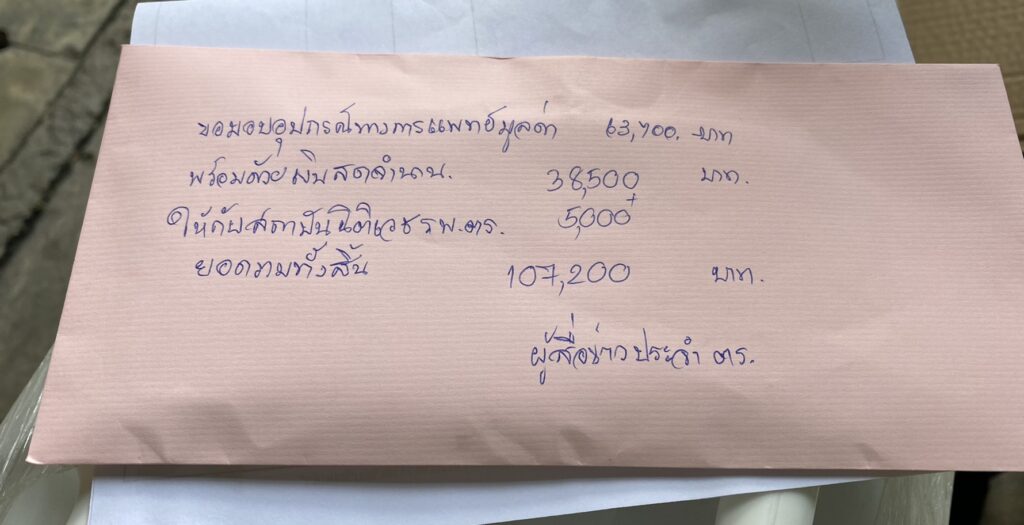 ขอมอบอุปกรณ์ทางการแพทย์มูลค่า 63,700.-บาท
พร้อมด้วยเงินสดจำนวน. 38,500 บาท.
+
ให้กับสถาบันนิติเวช รพ.ตร. 5,000
ยอดรวมทั้งสิ้น 107,200 บาท.
ผู้สื่อข่าวประจำ ตร.